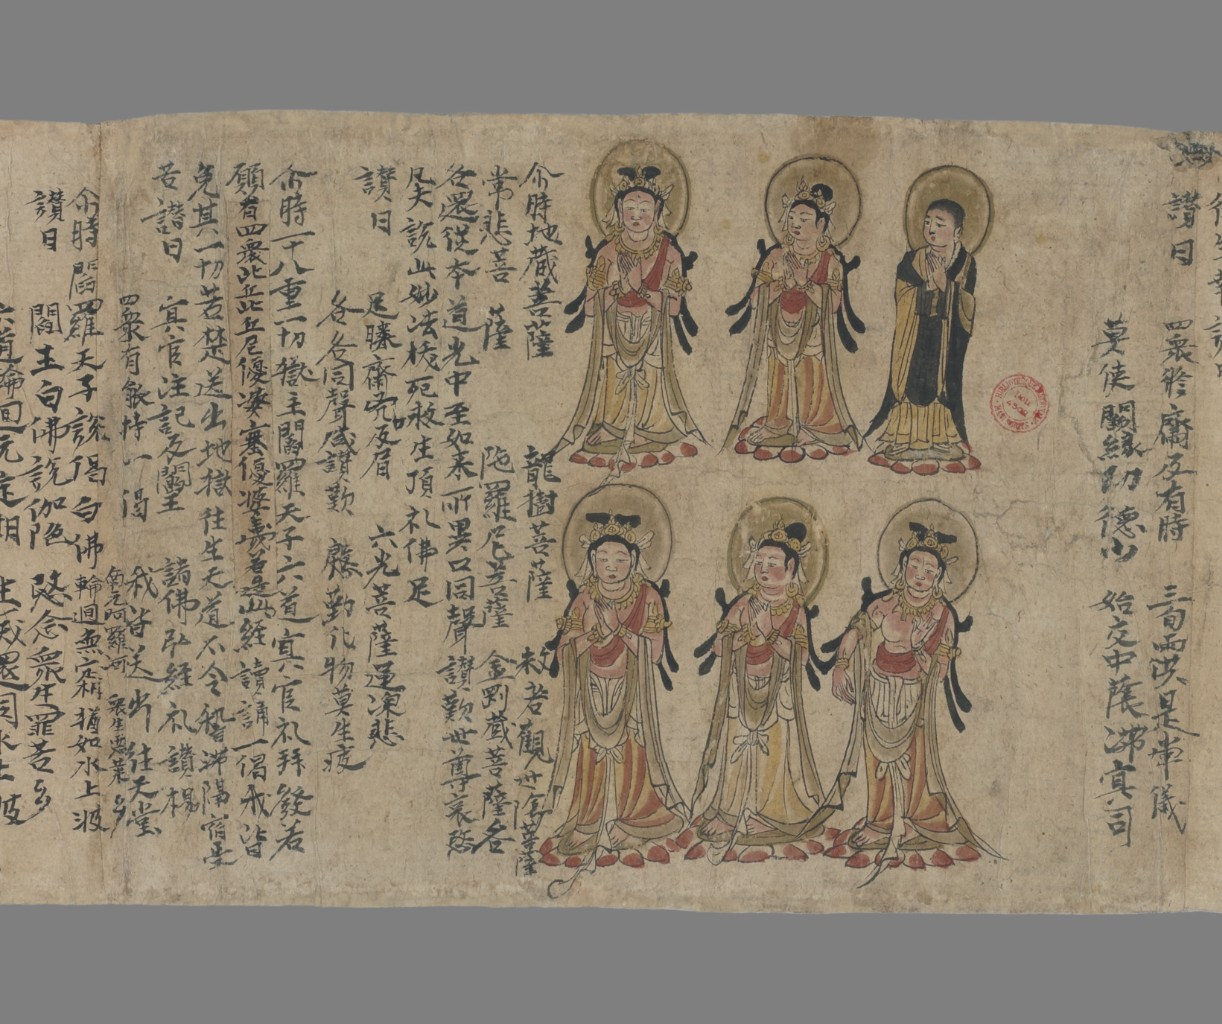 讃曰　四衆修齋及有時　三旬兩供是常儀
莫使闕緣功德少　始交中陰滯冥司
尒時地藏菩薩　龍樹菩薩　觀世音菩薩
常悲菩薩　陁羅尼菩薩　金剛藏菩薩各
各還從本道光中至如来所異口同聲讃歎世尊哀愍
凡夫說此妙法拔死救生頂礼佛足
讃曰　足膝齋及眉　六光菩薩運深悲
各各同聲咸讃歎　慇勤化物莫生疲
尒時一十八重一切獄主閻羅天子六道冥官礼拜發若
願有四衆比丘比丘尼優婆塞優婆夷若造此經讀誦一偈我皆
免其一切苦楚送出地獄往生天道不令稽滯隔宿受
苦讃曰　冥官注記及閻王　諸佛弘經礼讃楊
四衆有能持一偈　我皆送出往天堂
尒時閻羅天子說偈白佛　南无阿羅河　衆生惡業多　輪迴無定相　猶如水上波
讃曰　閻王白佛說伽陁　愍念衆生罪苦多
六道輪迴无定相